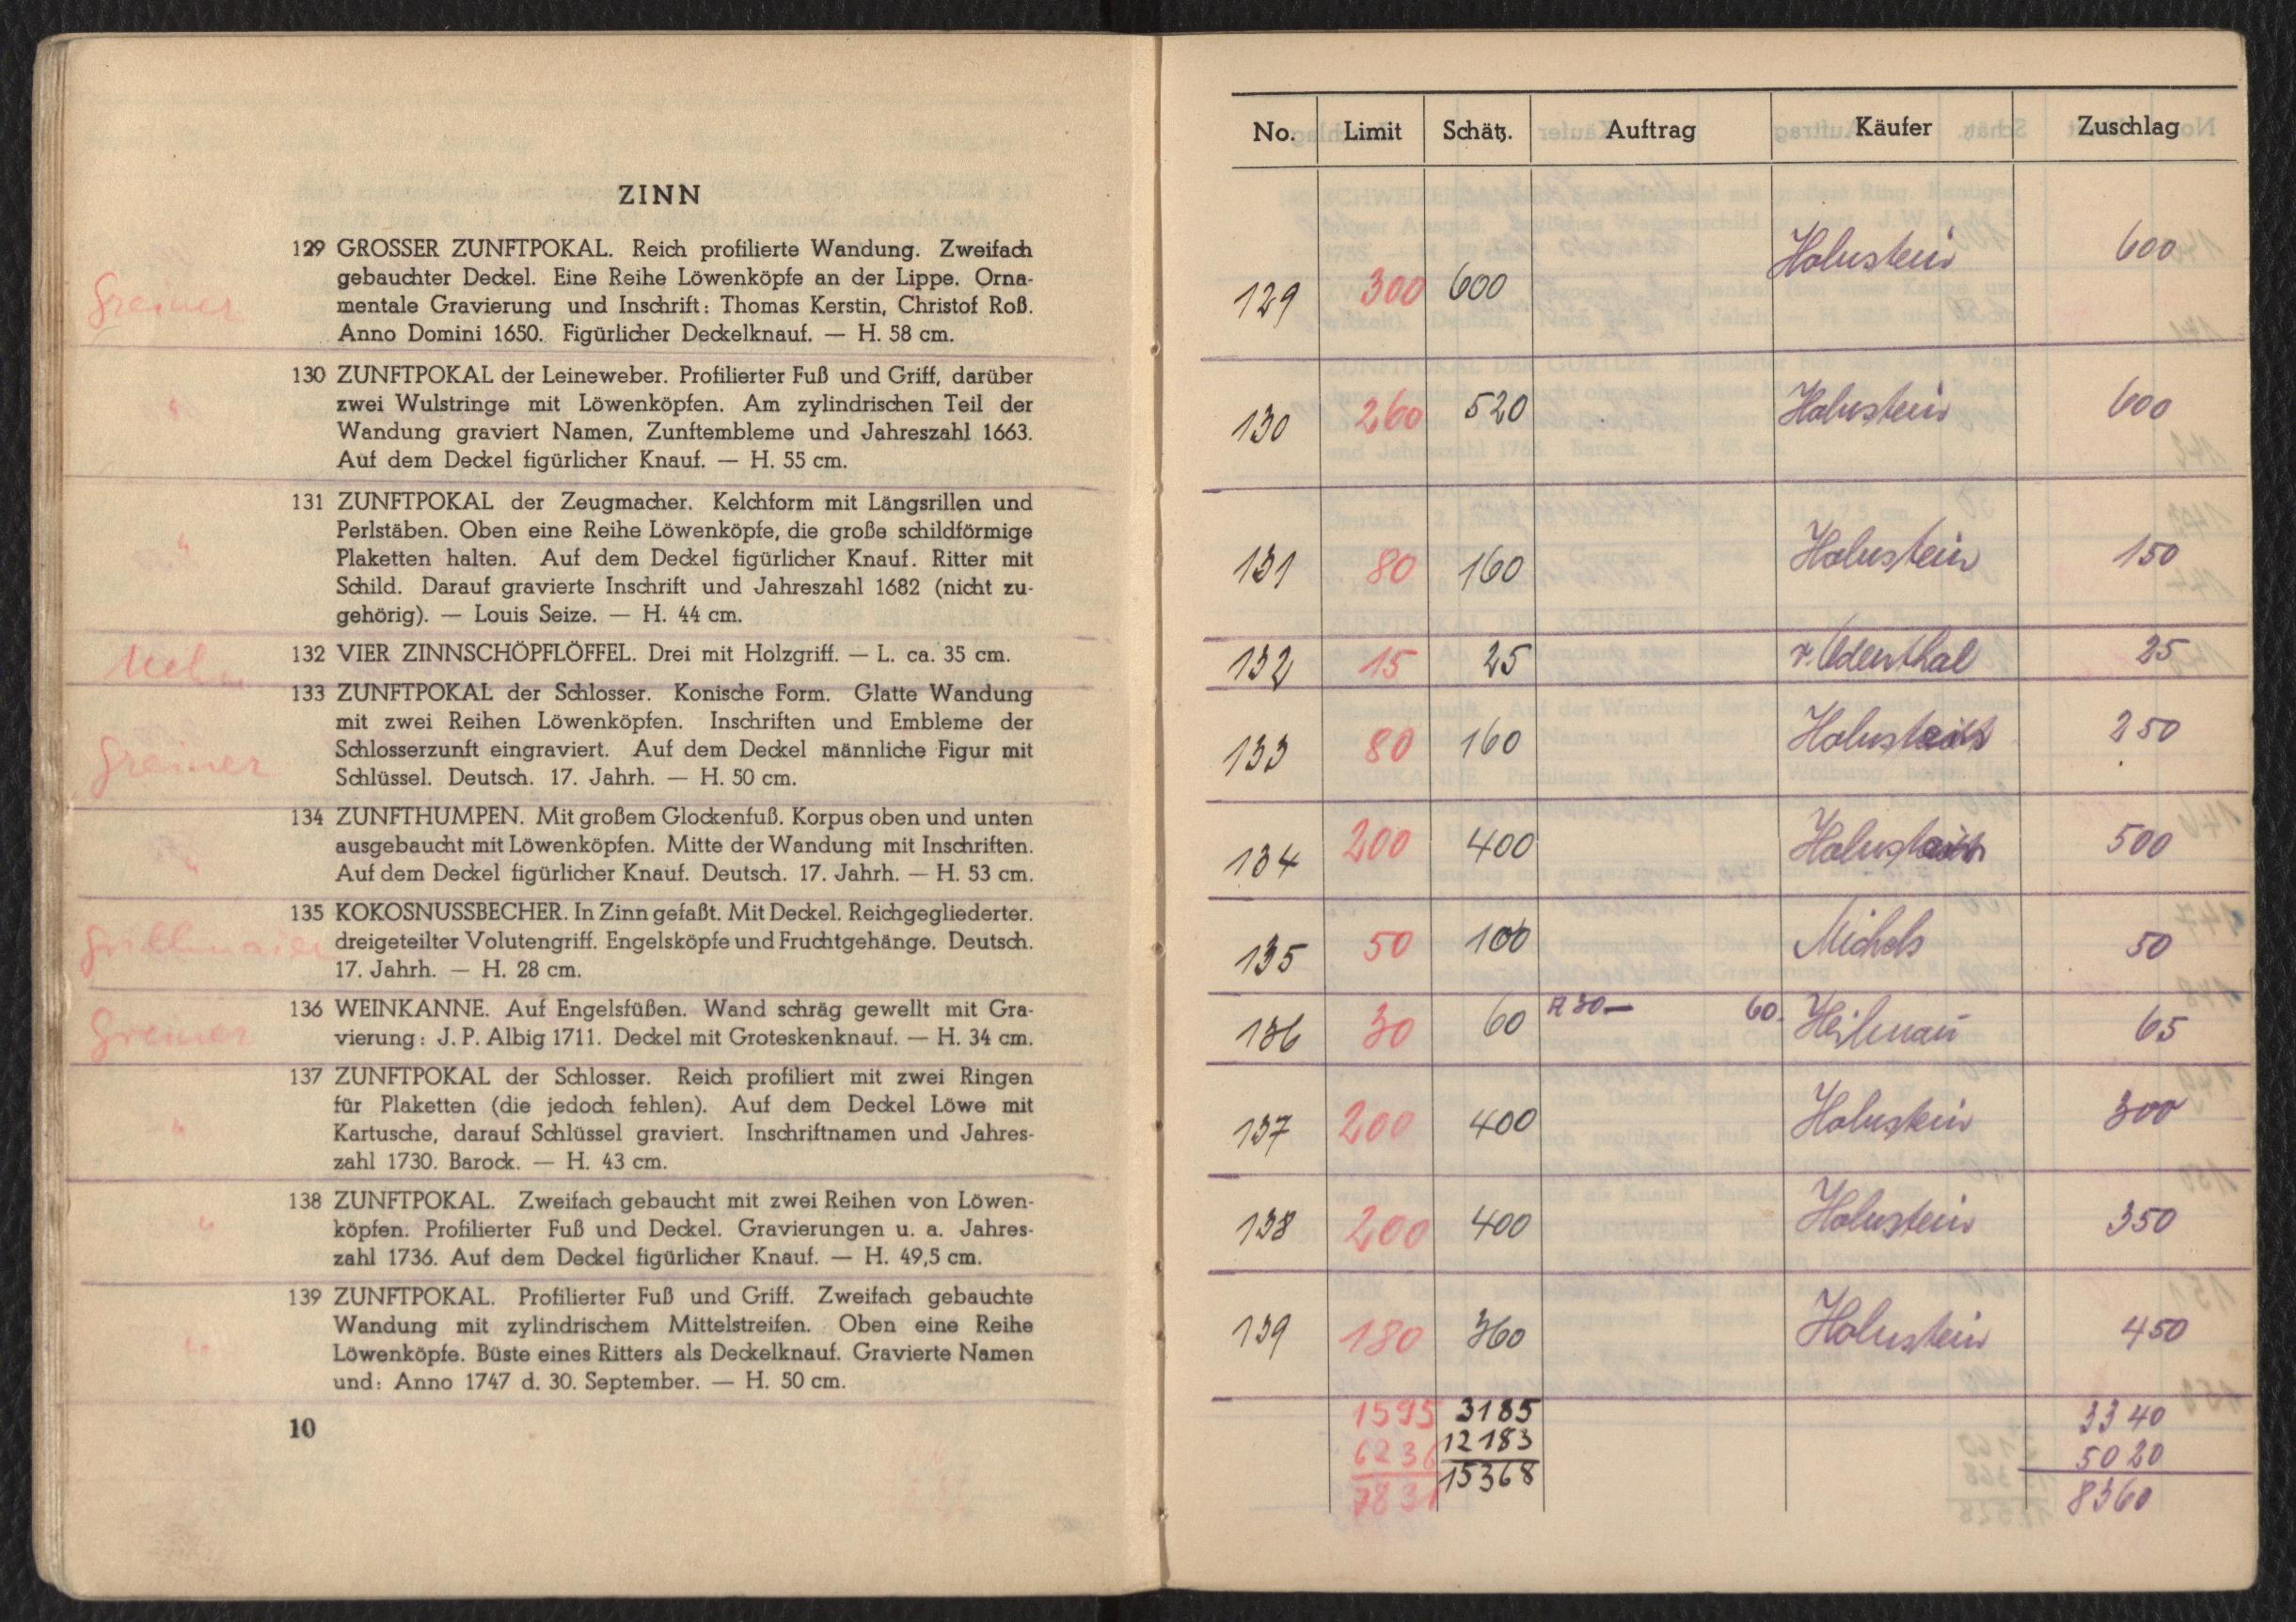 ZINN
129 GROSSER ZUNFTPOKAL. Reich profilierte Wandung. Zweifach
gebauchter Deckel. Eine Reihe Löwenköpfe an der Lippe. Orna-
Greiner
mentale Gravierung und Inschrift: Thomas Kerstin, Christof Roß.
Anno Domini 1650. Figürlicher Deckelknauf. — H. 58 cm.
130 ZUNFTPOKAL der Leineweber. Profilierter Fuß und Griff, darüber
" zwei Wulstringe mit Löwenköpfen. Am zylindrischen Teil der
Wandung graviert Namen, Zunftembleme und Jahreszahl 1663.
Auf dem Deckel figürlicher Knauf. — H. 55 cm.
131 ZUNFTPOKAL der Zeugmacher. Kelchform mit Längsrillen und
Perlstäben. Oben eine Reihe Löwenköpfe, die große schildförmige
" Plaketten halten. Auf dem Deckel figürlicher Knauf. Ritter mit
Schild. Darauf gravierte Inschrift und Jahreszahl 1682 (nicht zu-
gehörig). — Louis Seize. — H. 44 cm.
132 VIER ZINNSCHÖPFLÖFFEL. Drei mit Holzgriff. — L. ca. 35 cm.
133 ZUNFTPOKAL der Schlosser. Konische Form. Glatte Wandung
mit zwei Reihen Löwenköpfen. Inschriften und Embleme der
Greiner
Schlosserzunft eingraviert. Auf dem Deckel männliche Figur mit
Schlüssel. Deutsch. 17. Jahrh. — H. 50 cm.
134 ZUNFTHUMPEN. Mit großem Glockenfuß. Korpus oben und unten
ausgebaucht mit Löwenköpfen. Mitte der Wandung mit Inschriften.
" Auf dem Deckel figürlicher Knauf. Deutsch. 17. Jahrh. — H. 53 cm.
135 KOKOSNUSSBECHER. In Zinn gefaßt. Mit Deckel. Reichgegliederter.
Grillmaier
dreigeteilter Volutengriff. Engelsköpfe und Fruchtgehänge. Deutsch.
17. Jahrh. — H. 28 cm.
136 WEINKANNE. Auf Engelsfüßen. Wand schräg gewellt mit Gra-
Greiner
vierung: J. P. Albig 1711. Deckel mit Groteskenknauf. — H. 34 cm.
137 ZUNFTPOKAL der Schlosser. Reich profiliert mit zwei Ringen
für Plaketten (die jedoch fehlen). Auf dem Deckel Löwe mit
" Kartusche, darauf Schlüssel graviert. Inschriftnamen und Jahres-
zahl 1730. Barock. — H. 43 cm.
138 ZUNFTPOKAL. Zweifach gebaucht mit zwei Reihen von Löwen-
" köpfen. Profilierter Fuß und Deckel. Gravierungen u. a. Jahres-
zahl 1736. Auf dem Deckel figürlicher Knauf. — H. 49,5 cm.
139 ZUNFTPOKAL. Profilierter Fuß und Griff. Zweifach gebauchte
Wandung mit zylindrischem Mittelstreifen. Oben eine Reihe
" Löwenköpfe. Büste eines Ritters als Deckelknauf. Gravierte Namen
und: Anno 1747 d. 30. September. — H. 50 cm.
10
No. Limit Schätz. Auftrag Käufer Zuschlag
129 300 600 Holnstein 600
130 260 520 Holnstein 600
131 80 160 Holnstein 150
132 15 25 v. Odenthal 25
133 80 160 Holnstein 250
134 200 400 Holnstein 500
135 50 100 Michels 50
136 30 60 R 30— 60. Heilmann 65
137 200 400 Holnstein 300
138 200 400 Holnstein 350
139 180 360 Holnstein 450
1595 3185 3340
6236 12183 5020
7831 15368 8360